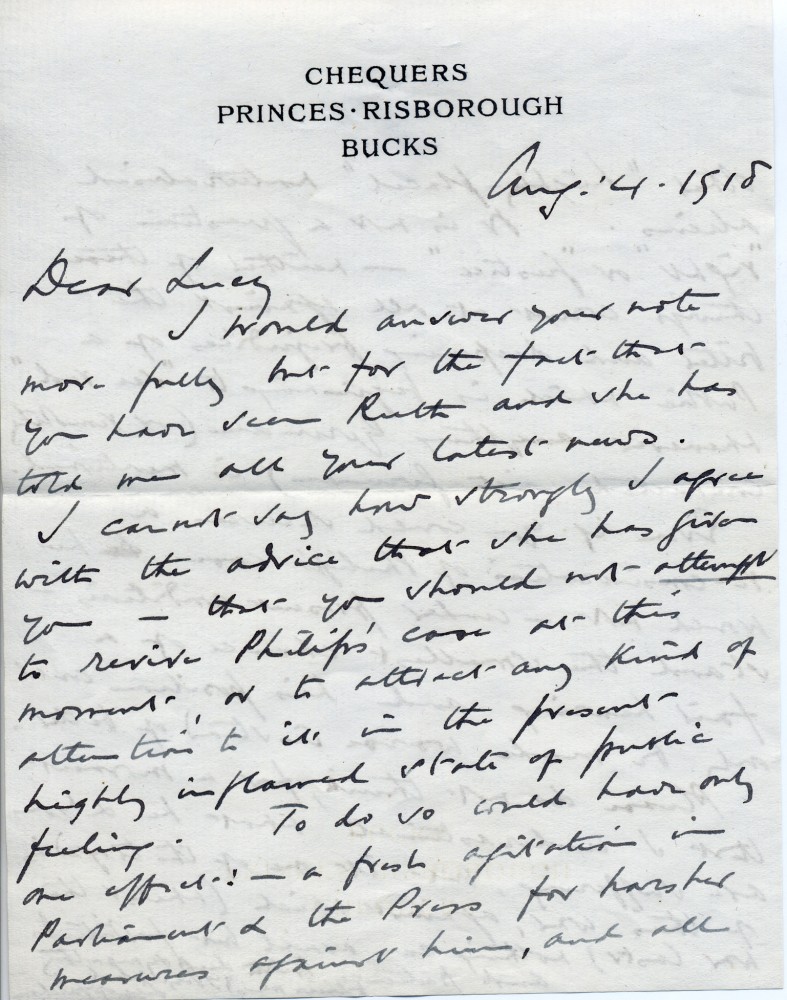 CHEQUERS
PRINCES·RISBOROUGH
BUCKS
Aug. 4. 1918
Dear Lucy
I would answer your note
more fully but for the fact that
you have seen Ruth and she has
told me all your latest news.
I cannot say how strongly I agree
with the advice that she has given
you — that you should not attempt
to revive Philip's case at this
moment, or to attract any kind of
attention to it in the present
highly inflamed state of public
feeling. To do so could have only
one effect: — a fresh agitation in
Parliament & the Press for harsher
measures against him, and all